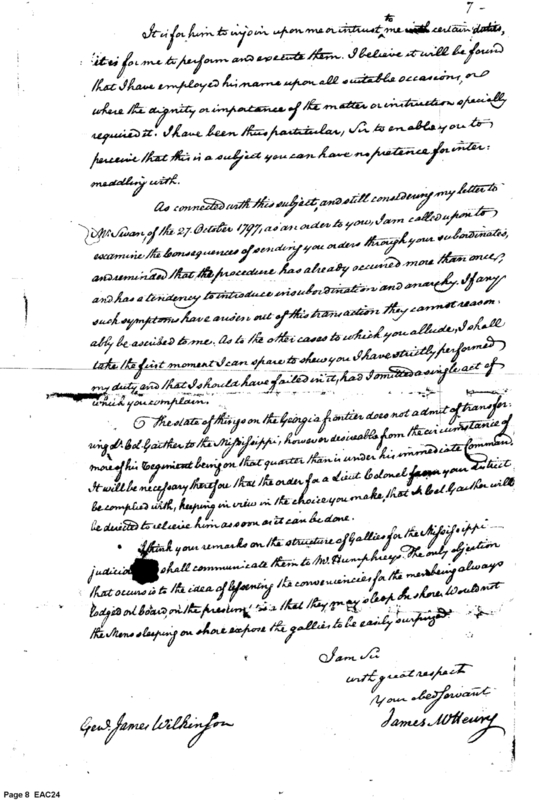 7 -
It is for him to injoin upon me or intrust to me with certain duties,
it is for me to perform and execute them. I believe it will be found
that I have employed his name upon all suitable occasions, or
where the dignity or importance of the matter or instruction specially
required it. I have been thus particular, Sir to enable you to
perceive that this is a subject you can have no pretence for inter=
meddling with.
As connected with this subject, and still considering my letter to
Mr. Swan, of the 27 October 1797, as an order to you, I am called upon to
examine the consequences of sending you orders through your subordinates,
and reminded that the procedure has already occured more than once,
and has a tendency to introduce insubordination and anarchy. If any
such symptoms have arisen out of this transaction they cannot reason.
ably be ascribed to me. As to the other cases to which you allude, I shall
take the first moment I can spare to shew you I have strictly performed
my duty and that I should have failed in it, had I omitted a single act of
which you complain.
The state of things on the Georgia frontier does not admit of transfer.
ring Lt. Col Gaither to the Mississippi, however desireable from the circumstance of
more of his Regiment being on that quarter than is under his immediate Command
It will be necessary therefore that the order for a Lieut Colonel from your district
be complied with, keeping in view in the choice you make, that Lt Col Gaither will
be directed to relieve him as soon as it can be done.
I think your remarks on the structure of Gallies for the Mississippi
judicio shall communicate them to Mr. Humphreys. The only objection
that occurs is to the idea of lessening the conveniencies for the men being always
lodged on board, on the presum is that they may sleep on shore. Would not
the Mens sleeping on shore expose the gallies to be easily surprized
I am Sir
with great respect
Your obed servant
James McHenry
Genl. James Wilkinson
Page 8 EAC24